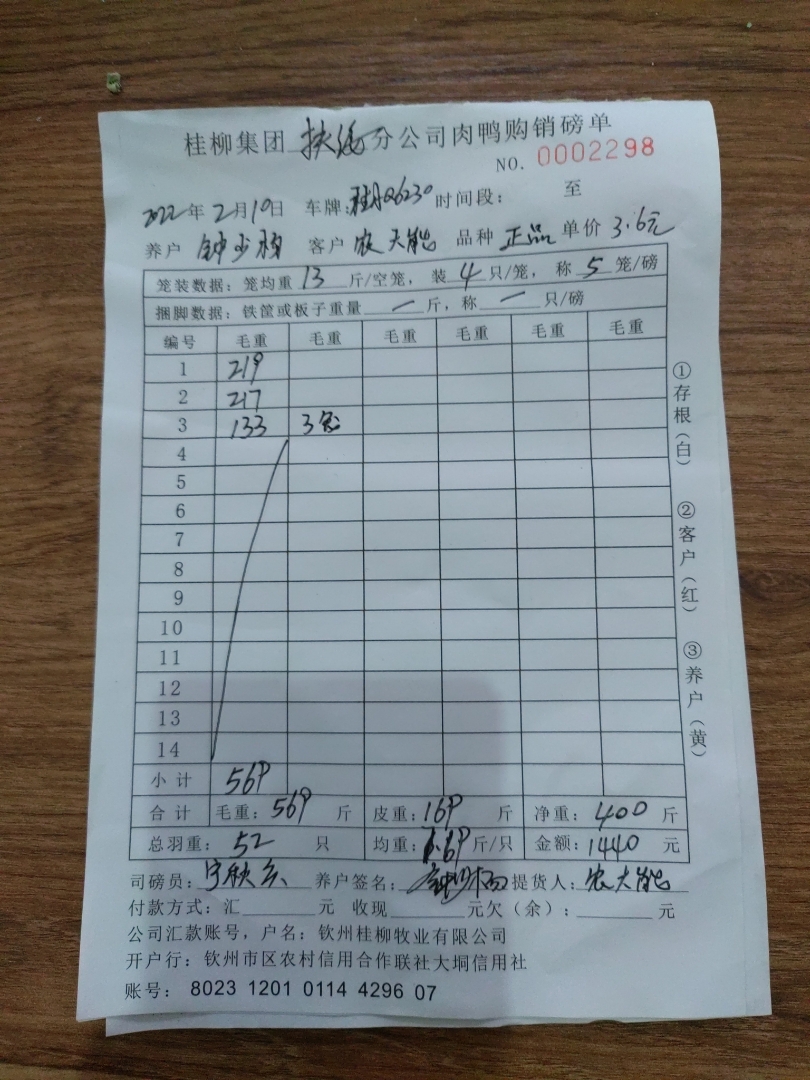 桂柳集团 扶绥 分公司肉鸭购销磅单
NO. 0002298
2022年2月10日 车牌: 时间段: 至
养户 钟少 客户 农大能 品种 正品 单价 3.6元
笼装数据: 笼均重 13 斤/空笼, 装 4 只/笼, 称 5 笼/磅
捆脚数据: 铁筐或板子重量 — 斤, 称 — 只/磅
编号 毛重 毛重 毛重 毛重 毛重 毛重
1 219
2 217
3 133 3笼
4
5
6
7
8
9
10
11
12
13
14
小计 569
合计 毛重: 569 斤 皮重: 169 斤 净重: 400 斤
总羽重: 52 只 均重: 7.69 斤/只 金额: 1440 元
司磅员: 养户签名: 提货人: 农大能
付款方式: 汇 元 收现 元欠(余): 元
公司汇款账号, 户名: 钦州桂柳牧业有限公司
开户行: 钦州市区农村信用合作联社大垌信用社
账号: 8023 1201 0114 4296 07
①存根(白)
②客户(红)
③养户(黄)